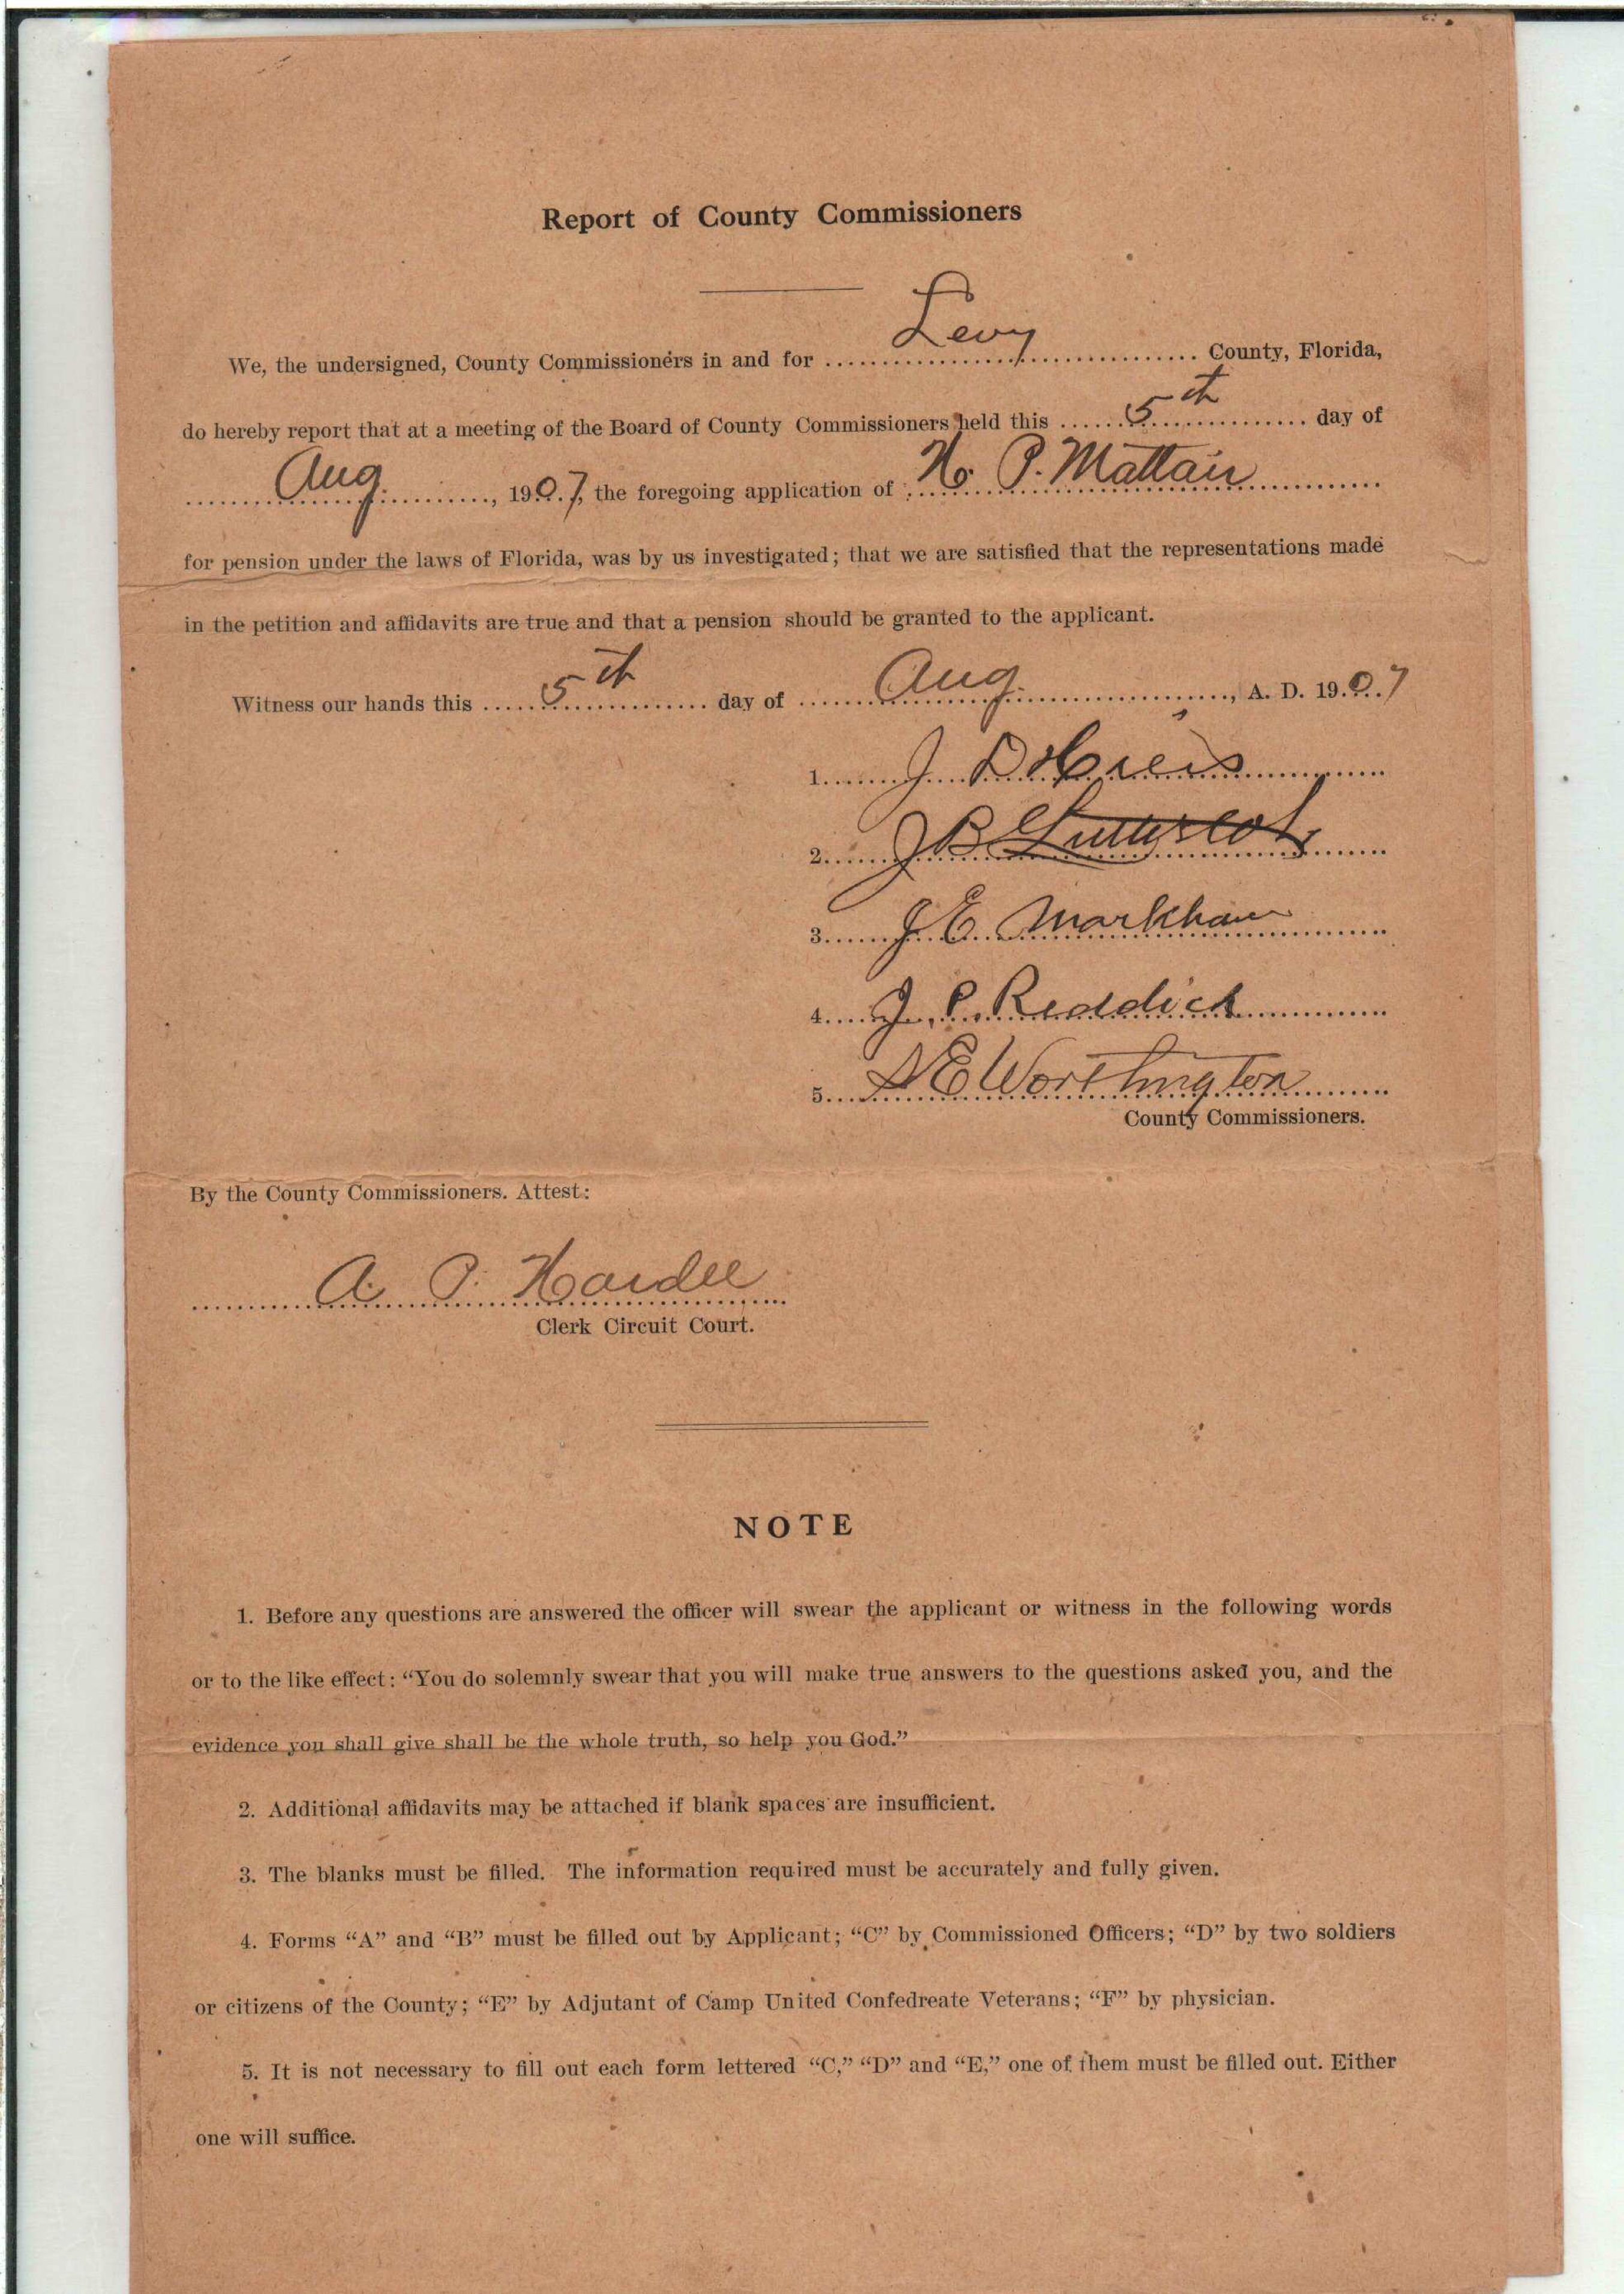 Report of County Commissioners
We, the undersigned, County Commissioners in and for Levy County, Florida,
do hereby report that at a meeting of the Board of County Commissioners held this 5th day of
Aug., 1907, the foregoing application of H. P. Mattair
for pension under the laws of Florida, was by us investigated; that we are satisfied that the representations made
in the petition and affidavits are true and that a pension should be granted to the applicant.
Witness our hands this 5th day of Aug., A. D. 1907
1. J. D.
2. J B
3. J. E. Markham
4. J. P. Reddick
5. Worthington
County Commissioners.
By the County Commissioners. Attest:
A. P. Hardee
Clerk Circuit Court.
NOTE
1. Before any questions are answered the officer will swear the applicant or witness in the following words
or to the like effect: “You do solemnly swear that you will make true answers to the questions asked you, and the
evidence you shall give shall be the whole truth, so help you God.”
2. Additional affidavits may be attached if blank spaces are insufficient.
3. The blanks must be filled. The information required must be accurately and fully given.
4. Forms “A” and “B” must be filled out by Applicant; “C” by Commissioned Officers; “D” by two soldiers
or citizens of the County; “E” by Adjutant of Camp United Confedreate Veterans; “F” by physician.
5. It is not necessary to fill out each form lettered “C,” “D” and “E,” one of them must be filled out. Either
one will suffice.